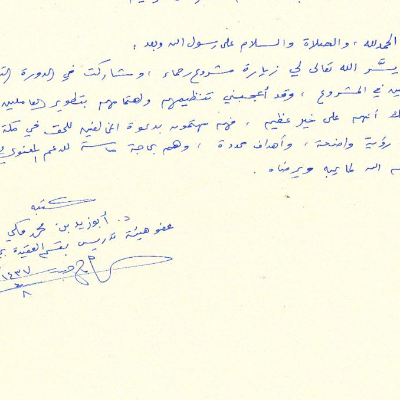 الحمد لله ، والصلاة والسلام على رسول الله وبعد ،
يسَّر الله تعالى لي زيارة مشروع رحماء ، ومشاركت في الدورة
ين في المشروع ، وقد أعجبني تنظيمهم واهتمامهم بتطوير العاملين
أنهم على خير عظيم ، فهم مهتمون بدعوة المخالفين للحق في مكة
رؤية واضحة ، وأهداف محددة ، وهم بحاجة ماسة للدعم المعنوي
الله لما يحبه ويرضاه .
كتبه
د. أبو زيد بن محمد مكي
عضو هيئة تدريس بقسم العقيدة
١٤٣٧
٨